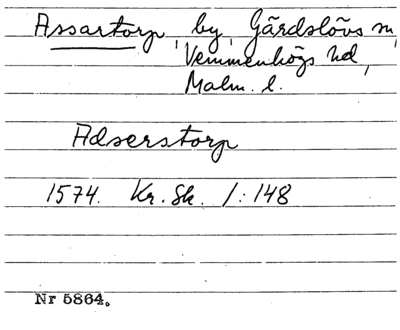 Assartorp, by, Gärdslövs sn,
Vemmenhögs hd,
Malm. l.
Adserstorp
1574. Kr. Sk. 1:148
Nr 5864.